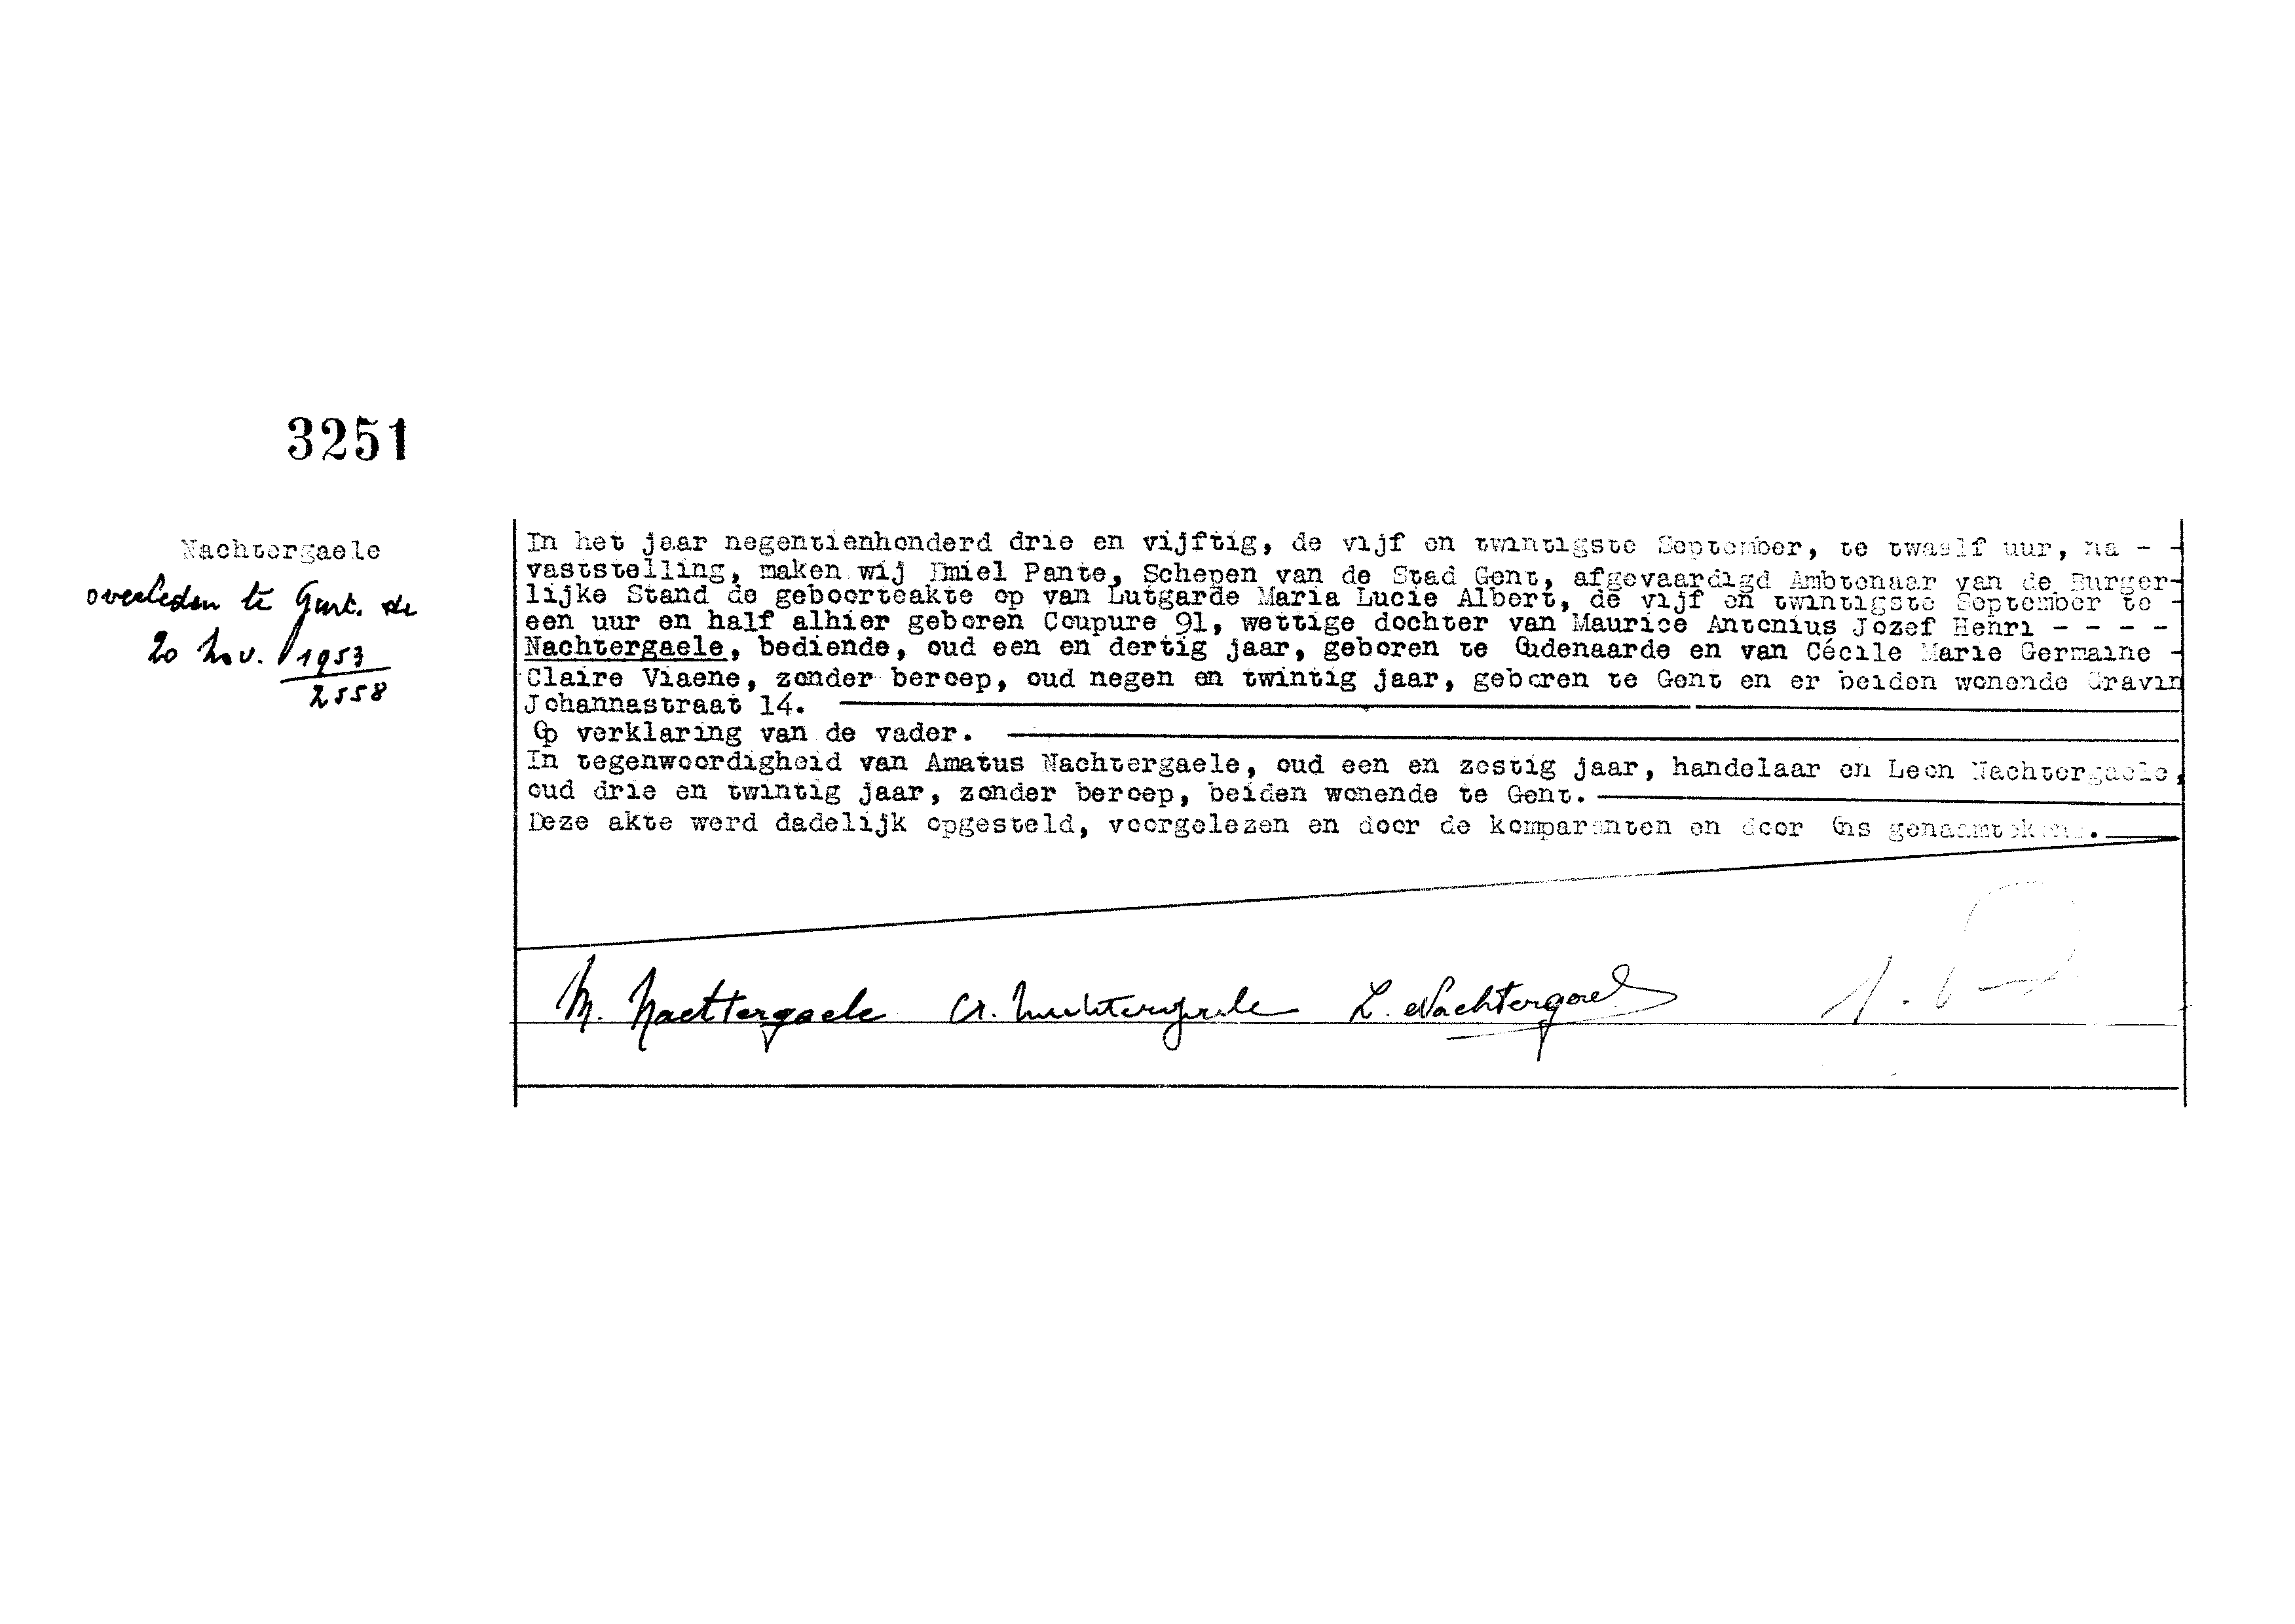 3251
Nachtergaele
overleden te Gent. de
20 Nov. 1953
2558
In het jaar negentienhonderd drie en vijftig, de vijf en twintigste September, te twaalf uur, na - -
vaststelling, maken wij Emiel Pante, Schepen van de Stad Gent, afgevaardigd Ambtenaar van de Burger-
lijke Stand de geboorteakte op van Lutgarde Maria Lucie Albert, de vijf en twintigste September te -
een uur en half alhier geboren Coupure 91, wettige dochter van Maurice Antonius Jozef Henri - - - -
Nachtergaele, bediende, oud een en dertig jaar, geboren te Oudenaarde en van Cécile Marie Germaine -
Claire Viaene, zonder beroep, oud negen en twintig jaar, geboren te Gent en er beiden wonende Gravin
Johannastraat 14.
Op verklaring van de vader.
In tegenwoordigheid van Amatus Nachtergaele, oud een en zestig jaar, handelaar en Leon Nachtergaele,
oud drie en twintig jaar, zonder beroep, beiden wonende te Gent.
Deze akte werd dadelijk opgesteld, voorgelezen en door de komparanten en door Ons genaamtekend.
M. Nachtergaele A. Nachtergaele L. Nachtergaele